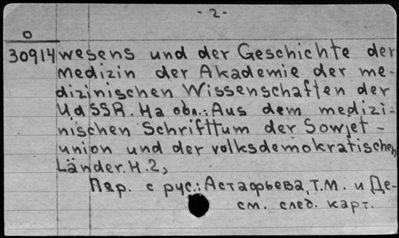 - 2 -
0
30914 wesens und der Geschichte der
Medizin der Akademie der me-
dizinischen Wissenschaften der
UdSSR. На обл.: Aus dem medizi-
nischen Schrifttum der Sowjet-
union und der volksdemokratischen
Länder. H.2,
Пер. с рус.: Астафьева, Т.М. и Де-
см. след. карт.